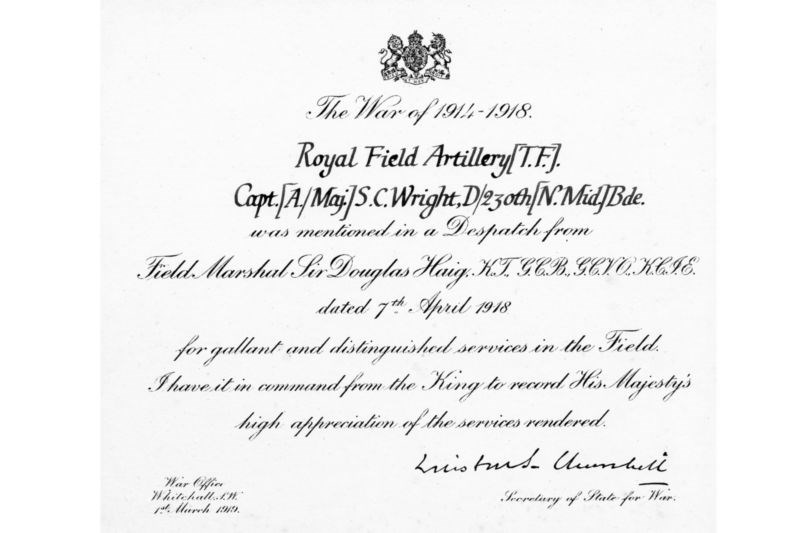 The War of 1914-1918.
Royal Field Artillery[T.F.].
Capt.[A/Maj.]S.C.Wright, D/230th[N.Mid.]Bde.
was mentioned in a Despatch from
Field Marshal Sir Douglas Haig, K.T. G.C.B., G.C.V.O., K.C.I.E.
dated 7th April 1918
for gallant and distinguished services in the Field.
I have it in command from the King to record His Majesty's
high appreciation of the services rendered.
Winston S Churchill
War Office
Whitehall, S.W.
1st March 1919.
Secretary of State for War.